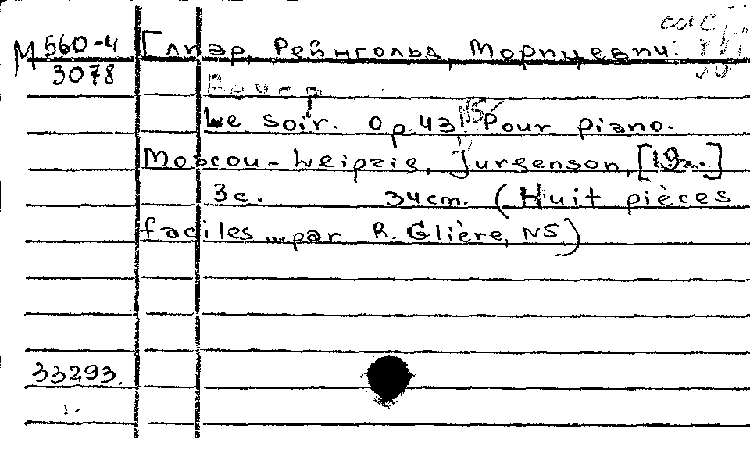 М 560-4 Глиэр, Рейнгольд Морицевич.
3078
Вечер
Le soir. Op. 43 №5 Pour piano.
Moscou-Leipzig, Jurgenson, [19..]
3с. 34cm. (Huit pièces
faciles ... par R. Glière, N5)
33293.